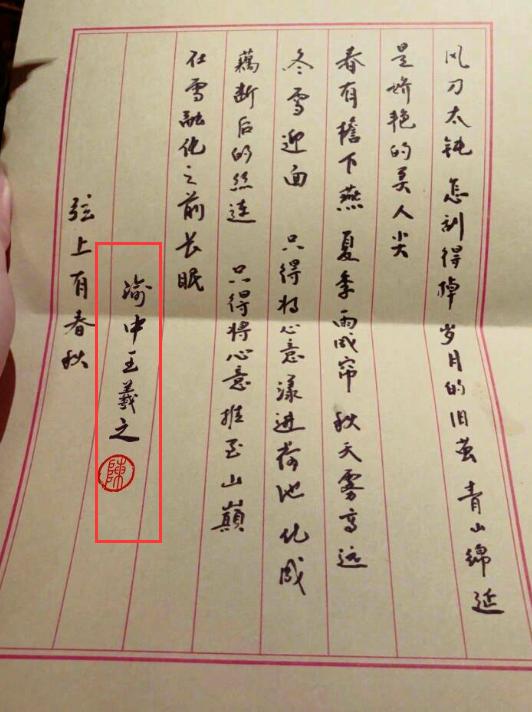 风刀太钝 怎刻得掉 岁月的旧茧 青山绵延
是娇艳的美人尖
春有檐下燕 夏季雨成帘 秋天雾高远
冬雪迎面 只得将心意漾进荷池 化成
藕断后的丝连 只得将心意推至山巅
在雪融化之前长眠
渝中王羲之
陳
弦上有春秋